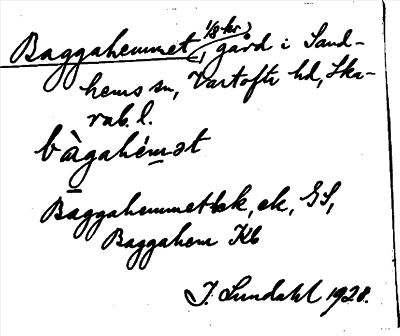 Baggahemmet, (1/8 kr) gård i Sand-
hems sn, Vartofta hd, Ska-
rab. l.
bàgahémət
Baggahemmet ek, GS,
Baggahem Kb
J. Sundahl 1928.